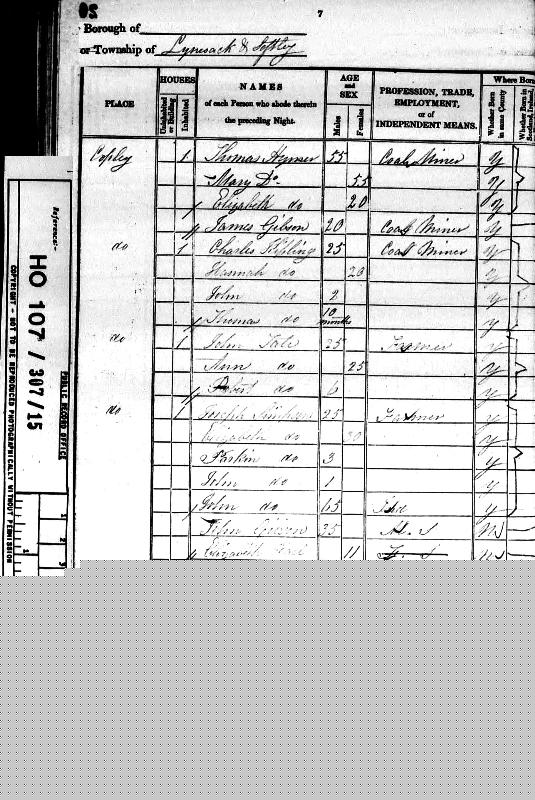 20
7
Borough of
or Township of Lynesack & Softley
PLACE
HOUSES
Uninhabited or Building
Inhabited
NAMES
of each Person who abode therein the preceding Night.
AGE and SEX
Males
Females
PROFESSION, TRADE, EMPLOYMENT, or of INDEPENDENT MEANS.
Where Born
Whether Born in same County
Whether Born in Scotland, Ireland,
Copley 1 Thomas 55 Coal Miner y
Mary Do 55 y
Elizabeth do 20 y
James Gibson 20 Coal Miner y
do 1 Charles Kipling 25 Coal Miner y
Hannah do 20 y
John do 2 y
Thomas do 10 months y
do 1 John Tale 25 Farmer y
Ann do 25 y
Robert do 6 y
do 1 Joseph 25 Farmer y
Elizabeth do 20 y
do 3 y
John do 1 y
John do 65 y
John 35 M. S N
Elizabeth 11 F. S N
Reference:-
HO 107 / 307/15
PUBLIC RECORD OFFICE
COPYRIGHT - NOT TO BE REPRODUCED PHOTOGRAPHICALLY WITHOUT PERMISSION
1
2
3
1